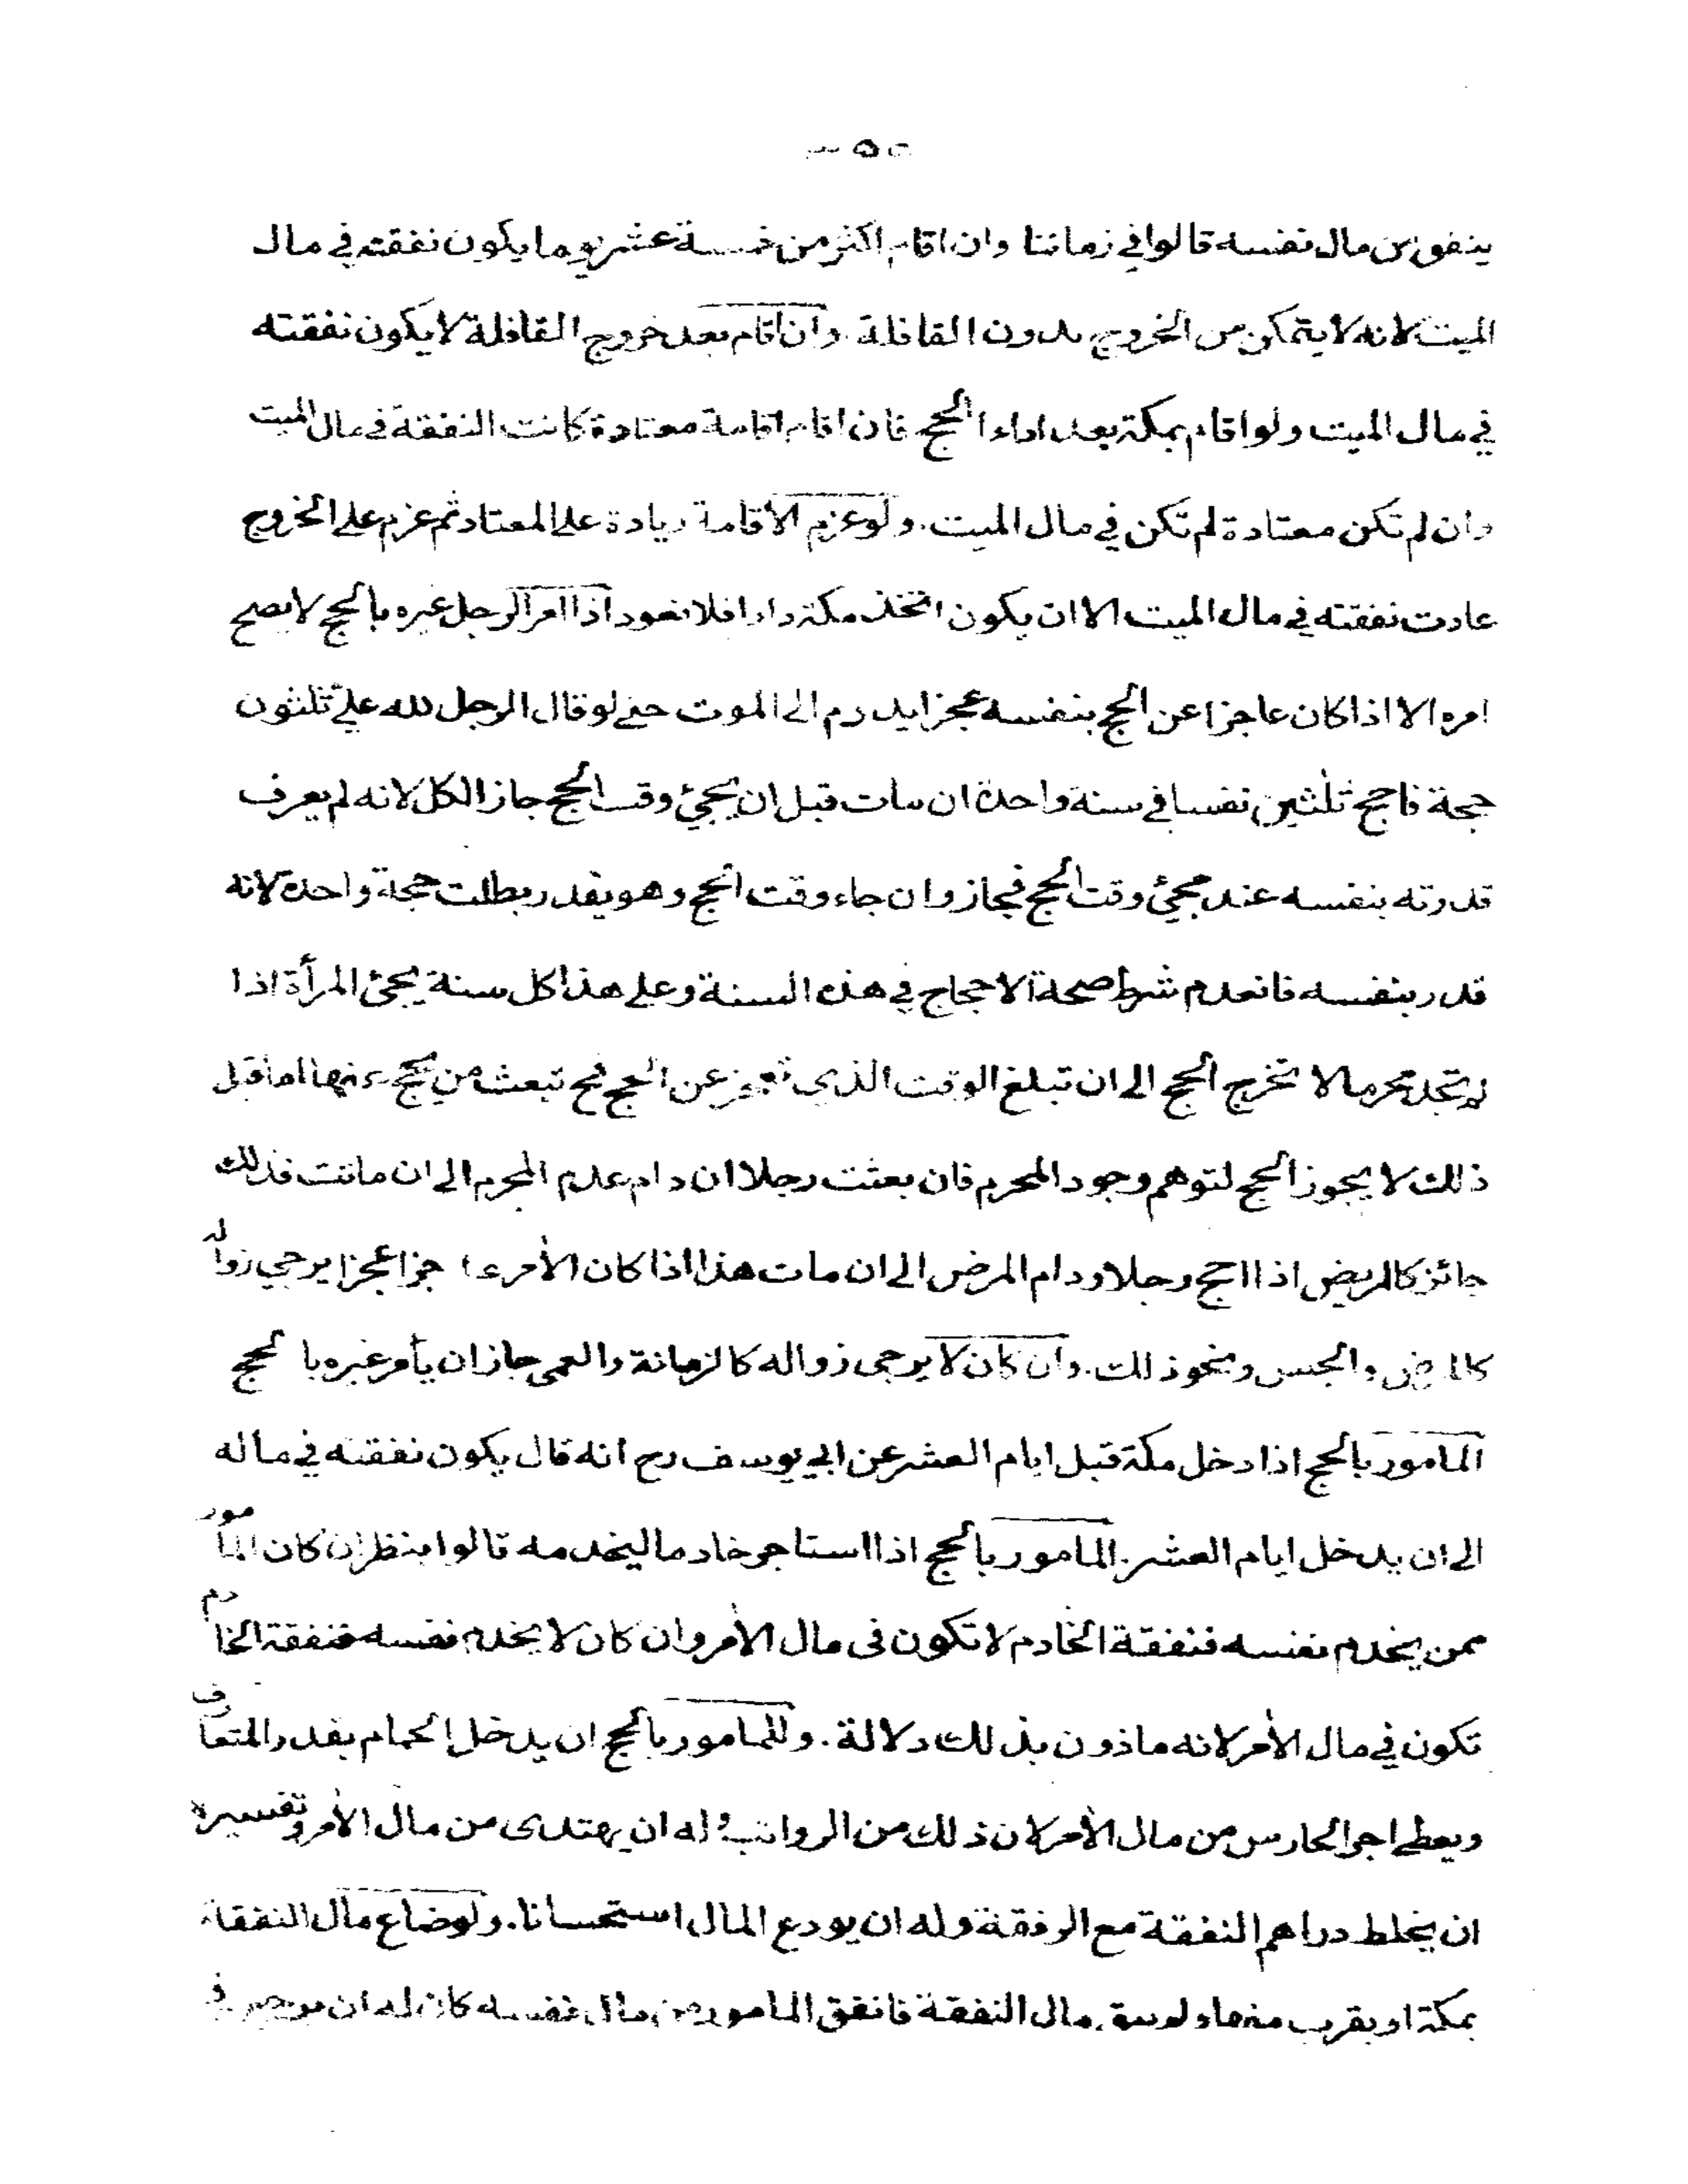 ينفق من مال نفسه قالوا في زماننا وان اقام اكثر من خمسة عشر يوما يكون نفقته في مال
الميت لانه لا يتمكن من الخروج بدون القافلة وان اقام بعد خروج القافلة لا يكون نفقته
في مال الميت ولو اقام بمكة بعد اداء الحج فان اقام اقامة معتادة كانت النفقة في مال الميت
وان لم تكن معتادة لم تكن في مال الميت. ولو عزم الاقامة زيادة على المعتاد ثم عزم على الخروج
عادت نفقته في مال الميت الا ان يكون اتخذ مكة دارا فلا تعود اذا امر الرجل غيره بالحج لا يصح
امره الا اذا كان عاجزا عن الحج بنفسه عجزا يدوم الى الموت حتى لو قال الرجل لله علي ثلثون
حجة فاحج ثلثين نفسا في سنة واحدة ان مات قبل ان يجئ وقت الحج جاز الكل لانه لم يعرف
قدرته بنفسه عند مجئ وقت الحج فجاز وان جاء وقت الحج وهو يقدر بطلت حجة واحدة لانه
قدر بنفسه فانعدم شرط صحة الاحجاج في هذه السنة وعلى هذا كل سنة يجئ المرأة اذا
لم تجد محرما لا تخرج الحج الى ان تبلغ الوقت الذي تعجز عن الحج فح تبعث من يحج عنها اما قبل
ذلك لا يجوز الحج لتوهم وجود المحرم فان بعثت رجلا ان دام عدم المحرم الى ان ماتت فذلك
جائز كالمريض اذا احج رجلا ودام المرض الى ان مات هذا اذا كان الأمر عاجزا عجزا يرجى زواله
كالمرض والحبس ونحو ذلك. وان كان لا يرجى زواله كالزمانة والعمى جاز ان يأمر غيره بالحج
المامور بالحج اذا دخل مكة قبل ايام العشر عن ابي يوسف رح انه قال يكون نفقته في ماله
الى ان يدخل ايام العشر. المامور بالحج اذا استاجر خادما ليخدمه قالوا ينظر ان كان المأمور
ممن يخدم نفسه فنفقة الخادم لا تكون في مال الأمر وان كان لا يخدم نفسه فنفقة الخادم
تكون في مال الأمر لانه ماذون بذلك دلالة. وللمامور بالحج ان يدخل الحمام بقدر المتعارف
ويعطي اجر الحارس من مال الأمر لان ذلك من الرواتب وله ان يهتدى من مال الأمر وتفسيره
ان يخلط دراهم النفقة مع الرفقة وله ان يودع المال استحسانا. ولو ضاع مال النفقة
بمكة او بقرب منها ولم يبق مال النفقة فانفق المامور من مال نفسه كان له ان يرجع في